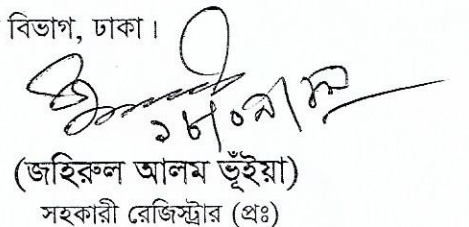 বিভাগ, ঢাকা।
(জহিরুল আলম ভূঁইয়া)
সহকারী রেজিস্ট্রার (প্রঃ)